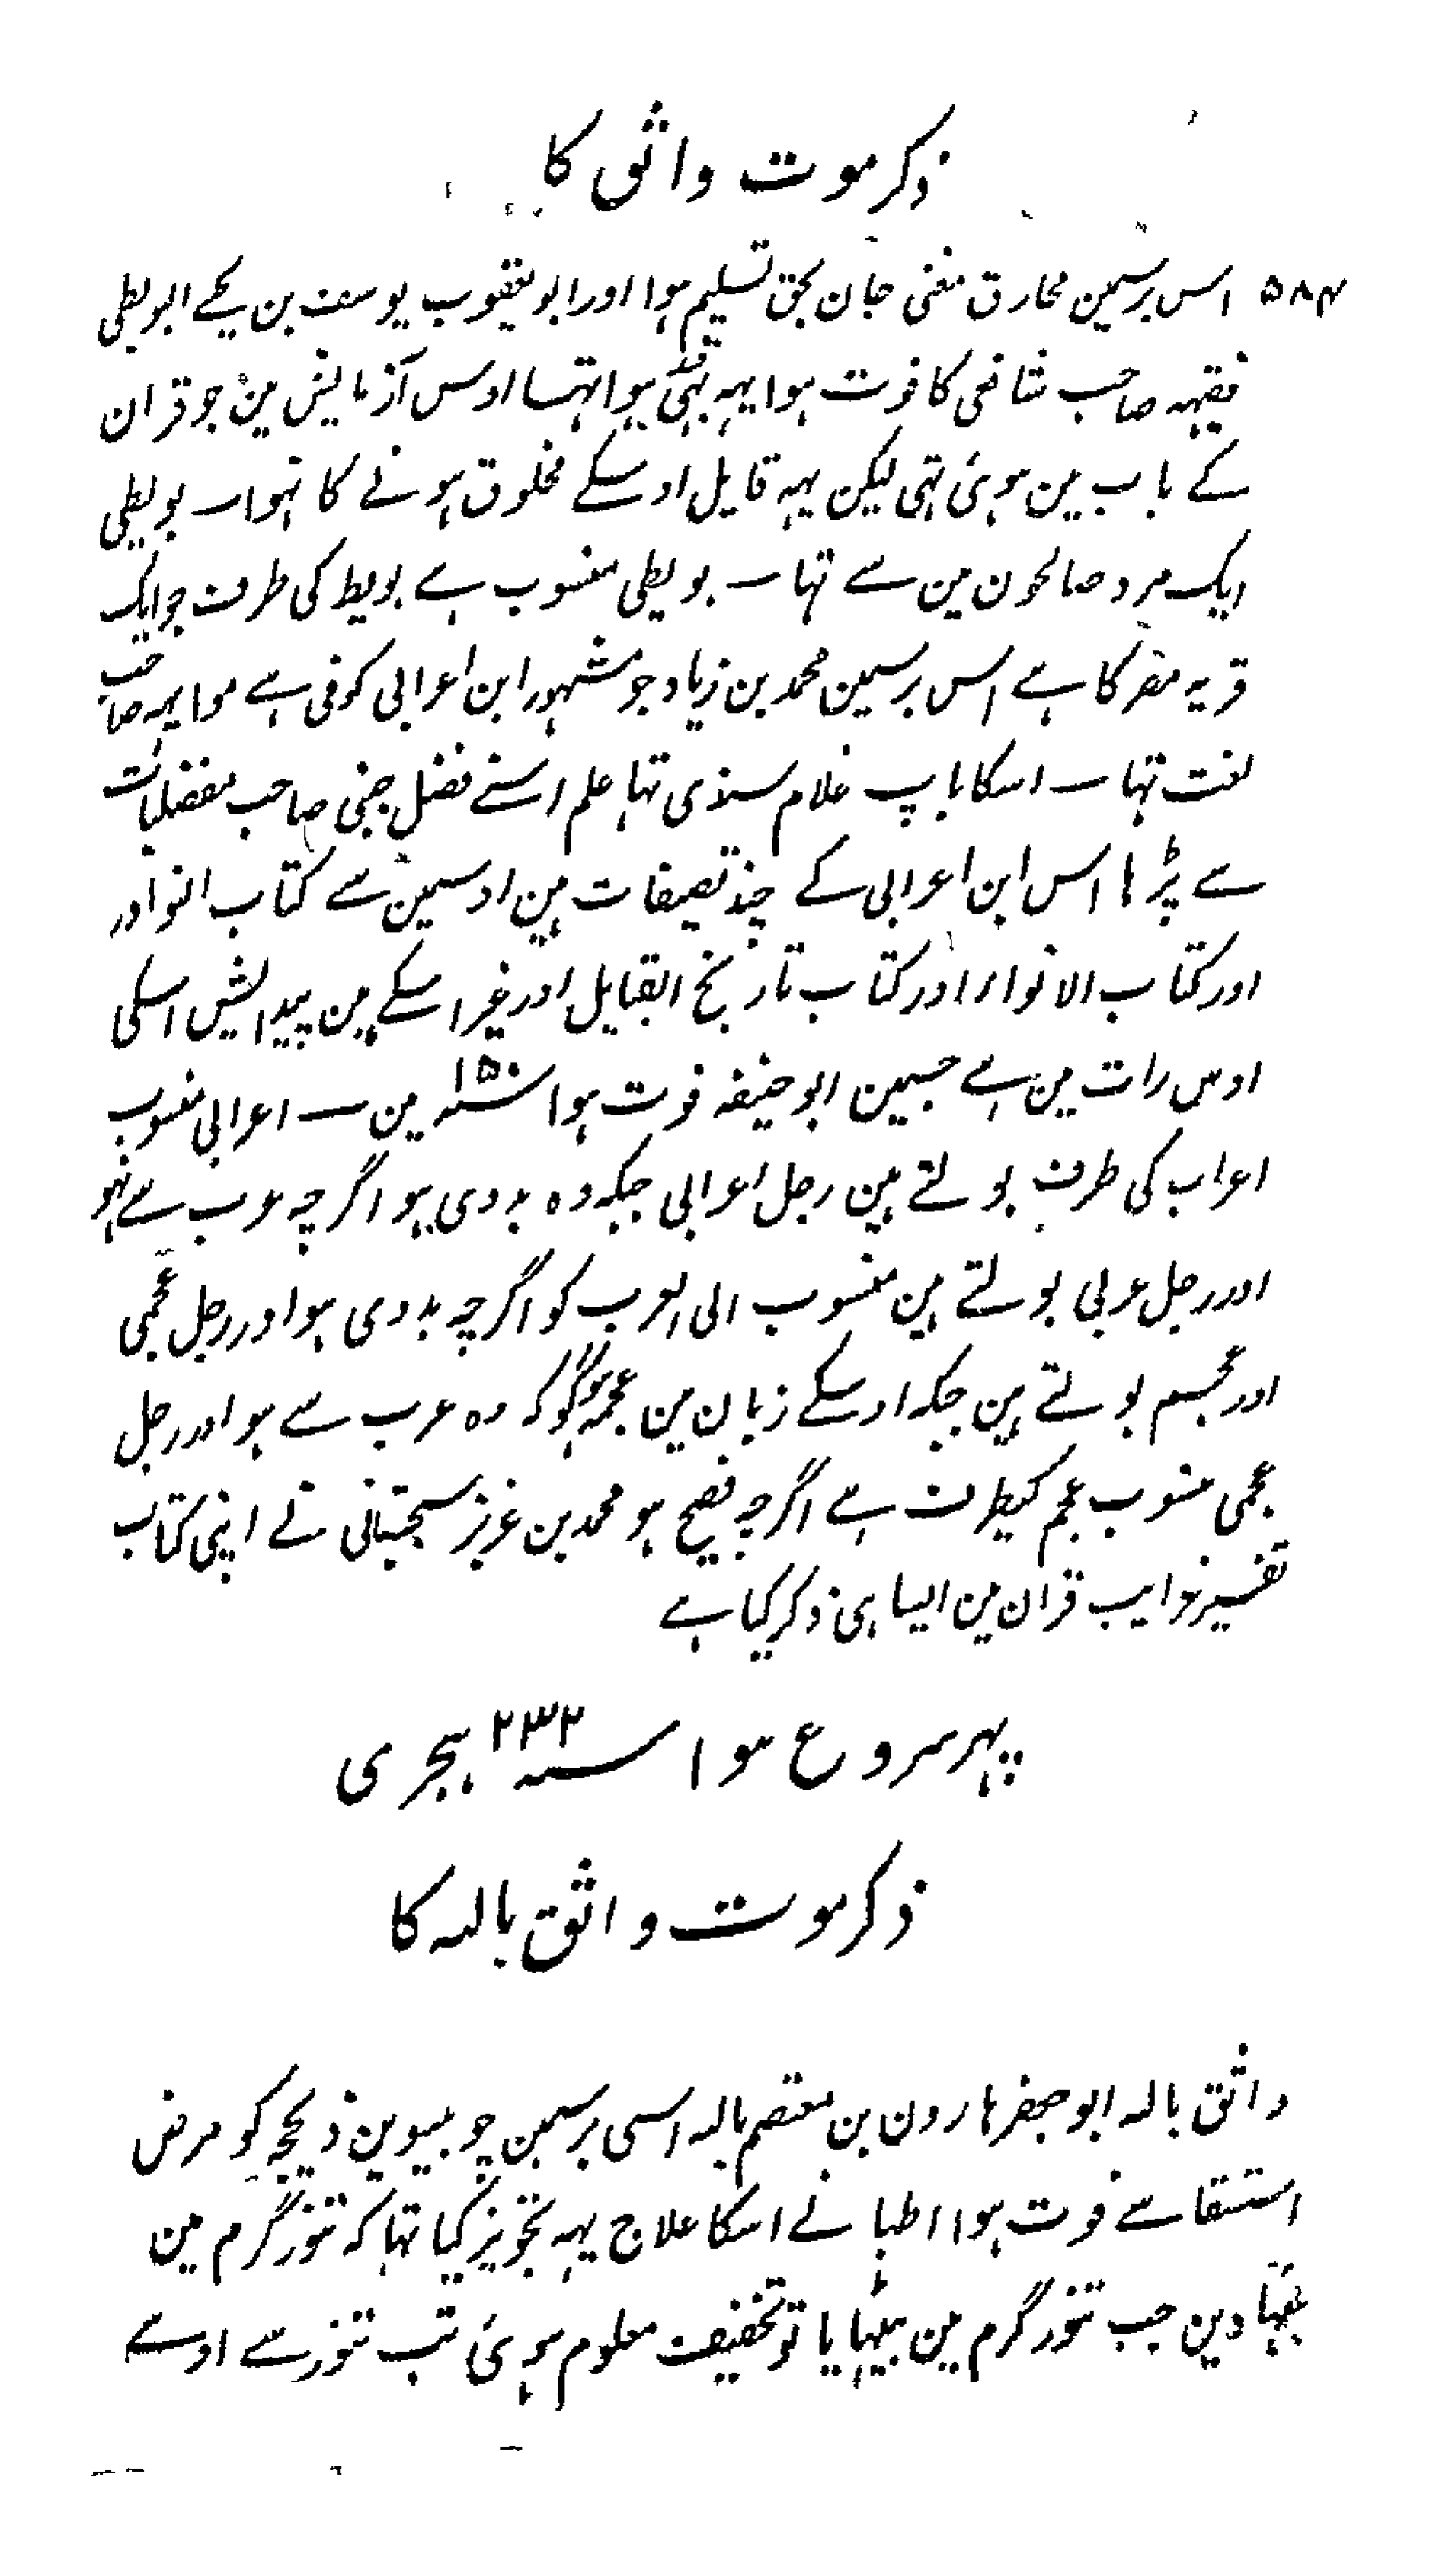 ذکر موت واثق کا
۵۸۴ اس برسمین مخارق مغنی جان بحق تسلیم ہوا اور ابو یعقوب یوسف بن یحیے البویطی
فقیہہ صاحب شافعی کا فوت ہوا یہہ بہی ہوا تہا اوس آزمایش مین جو قران
کے باب مین ہوئی تہی لیکن یہہ قایل اوسکے مخلوق ہونے کا نہوا ۔ بویطی
ایک مرد صالحون مین سے تہا ۔ بویطی منسوب ہے بویط کی طرف جو ایک
قریہ مصر کا ہے اس برسمین محمد بن زیاد جو مشہور ابن اعرابی کوفی ہے موا یہہ صاحب
لغت تہا ۔ اسکا باپ غلام سندی تہا علم اسنے فضل ضبی صاحب مفضلیات
سے پڑہا اس ابن اعرابی کے چند تصیفات ہین اوسمین سے کتاب النوادر
اور کتاب الانوار اور کتاب تاریخ القبایل اور غیر اسکے ہین پیدایش اسکی
اوس رات مین ہے جسمین ابو حنیفہ فوت ہوا سنہ ۱۵۰ مین ۔ اعرابی منسوب
اعراب کی طرف بولتے ہین رجل اعرابی جبکہ وہ بدوی ہو اگرچہ عرب سے نہو
اور رجل عربی بولتے ہین منسوب الی العرب کو اگرچہ بدوی ہو اور رجل عجمی
اور عجم بولتے ہین جبکہ اوسکے زبان مین عجمہ ہو گو کہ وہ عرب سے ہو اور رجل
عجمی منسوب عجم کیطرف ہے اگرچہ فصیح ہو محمد بن عزیز سجستانی نے اپنی کتاب
تفسیر غرایب قران مین ایسا ہی ذکر کیا ہے
پہر سروع ہوا سنہ ۲۳۲ ہجری
ذکر موت واثق بالله کا
واثق بالله ابو جعفر ہارون بن معتصم بالله اسی برسمین چوبیسوین ذیحجہ کو مرض
استسقا سے فوت ہوا اطبا نے اسکا علاج یہہ تجویز کیا تہا کہ تنور گرم مین
بٹہا دین جب تنور گرم مین بیٹہایا تو تخفیف معلوم ہوئی تب تنور سے اوسے